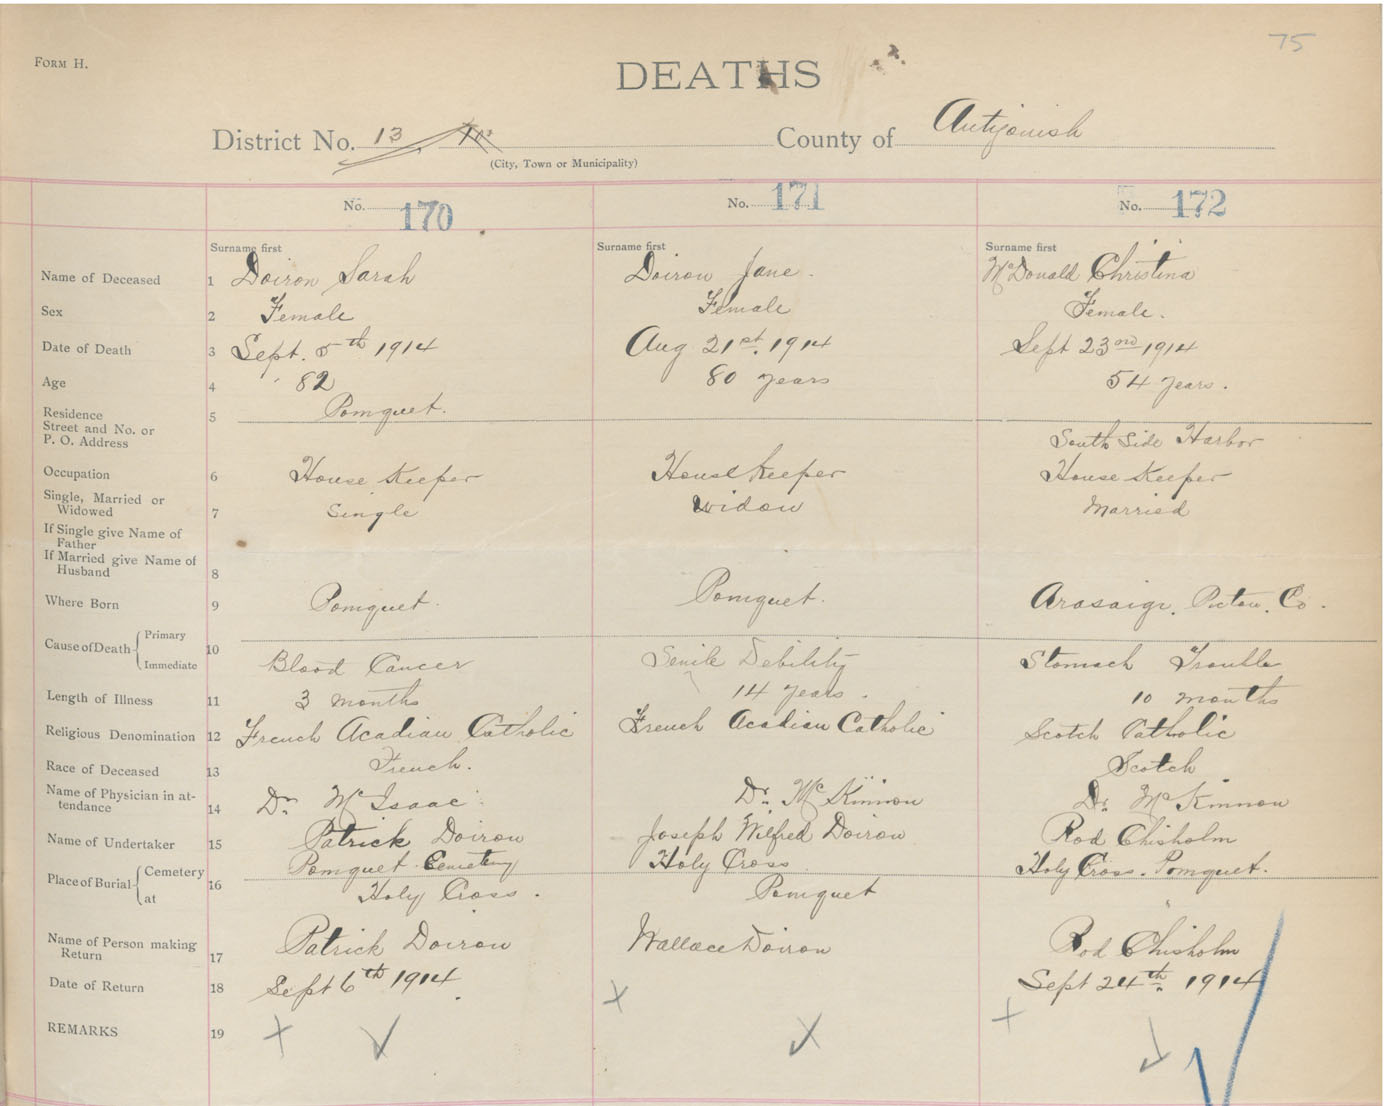 75
FORM H.
DEATHS
District No. 13
County of Antigonish
(City, Town or Municipality)
No. 170
No. 171
No. 172
Surname first
Surname first
Surname first
Name of Deceased 1 Doiron Sarah
Doiron Jane.
McDonald Christina
Sex 2 Female
Female
Female.
Date of Death 3 Sept. 5th 1914
Aug 21st. 1914
Sept 23rd 1914
Age 4 82
80 years
54 years.
Residence
Street and No. or
P. O. Address
5 Pomquet.
South Side Harbor
Occupation 6 House Keeper
House keeper
House Keeper
Single, Married or
Widowed
7 Single
Widow
Married
If Single give Name of
Father
If Married give Name of
Husband
8
Where Born 9 Pomquet.
Pomquet.
Arasaig, Pictou, Co.
Cause of Death Primary
Immediate
10 Blood Cancer
Senile Debility
Stomach Trouble
Length of Illness 11 3 months
14 years.
10 months
Religious Denomination 12 French Acadian Catholic
French Acadian Catholic
Scotch Catholic
Race of Deceased 13 French.
Scotch
Name of Physician in at-
tendance
14 Dr McIsaac
Dr. McKinnon
Dr. McKinnon
Name of Undertaker 15 Patrick Doiron
Joseph Wilfred Doiron
Rod Chisholm
Place of Burial Cemetery
at
16 Pomquet Cemetery
Holy Cross.
Holy Cross
Pomquet
Holy Cross. Pomquet.
Name of Person making
Return
17 Patrick Doiron
Wallace Doiron
Rod Chisholm
Date of Return 18 Sept 6th 1914
Sept 24th. 1914
REMARKS 19